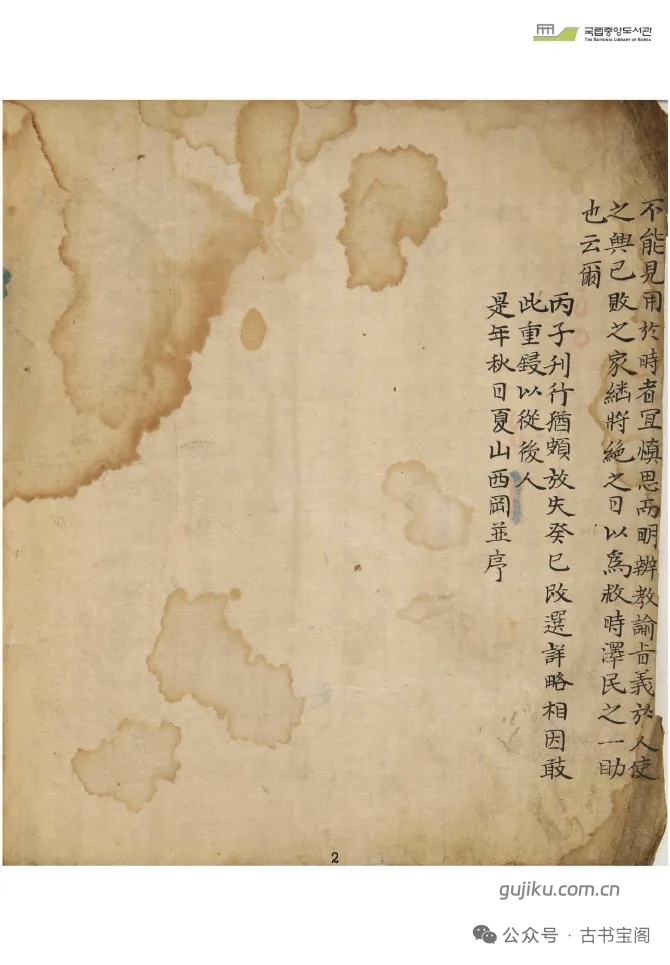 국립중앙도서관
THE NATIONAL LIBRARY OF KOREA
不能見用於時者宜慎思而明辨教諭旨義於人使
之興已敗之家繼將絶之日以爲救時澤民之一助
也云爾
丙子刊行猶頗放失癸巳改選詳略相因敢
此重鋟以從後人
是年秋日夏山西岡並序
2
gujiku.com.cn
公众号·古书宝阁